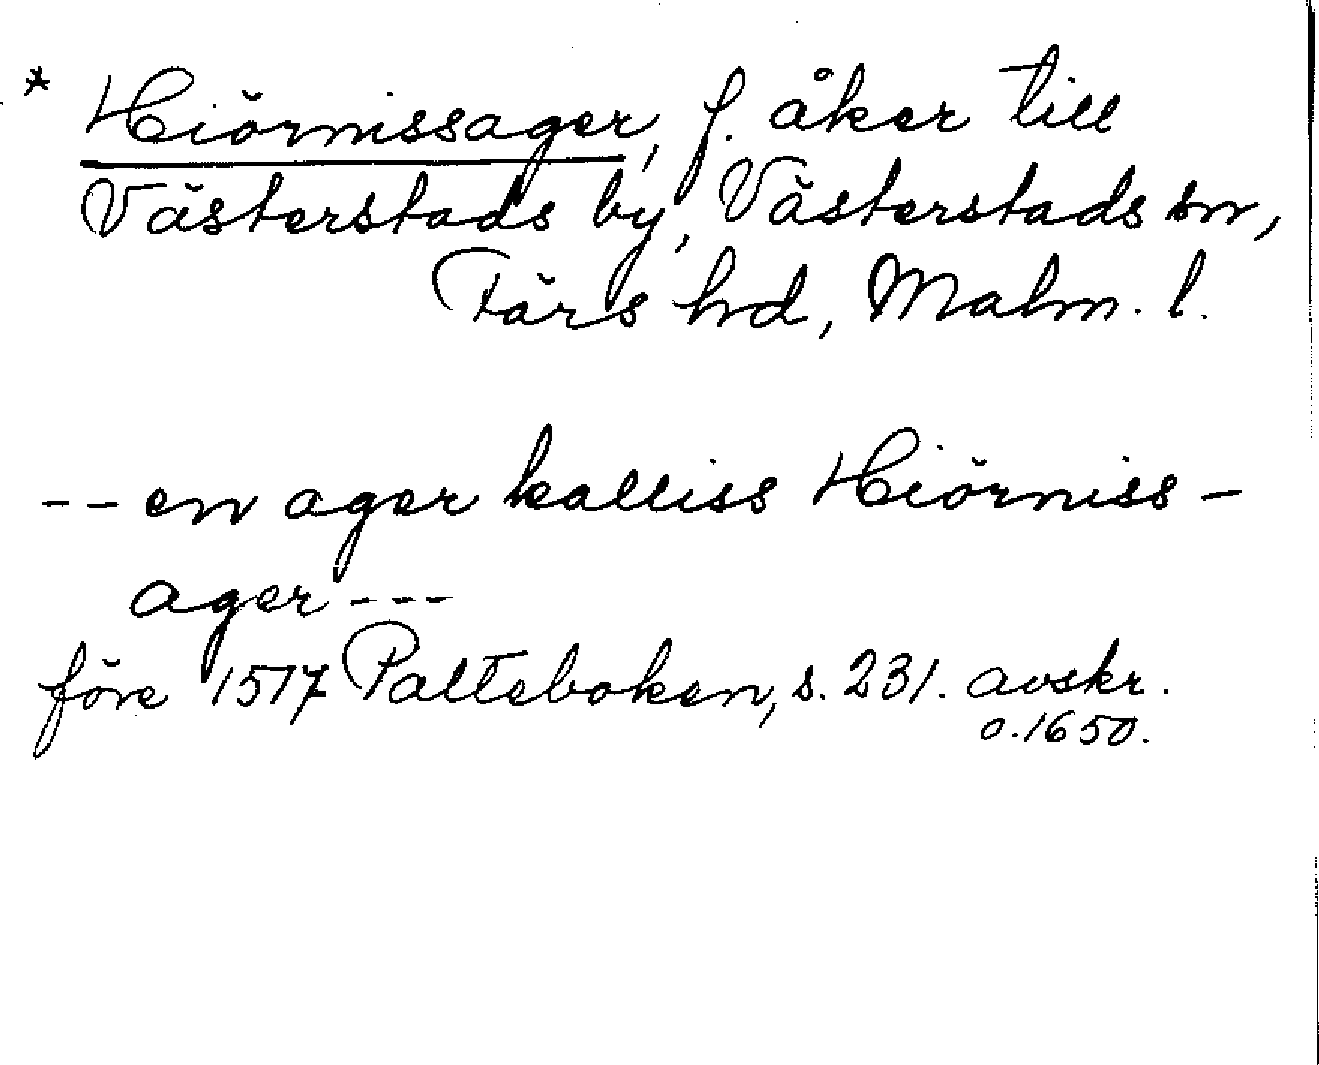 * Hiörnissager, f. åker till
Västerstads by, Västerstads sn,
Färs hd, Malm. l.
-- en ager kalliss Hiörniss-
ager ---
före 1517 Palteboken, s. 231. avskr.
o. 1650.